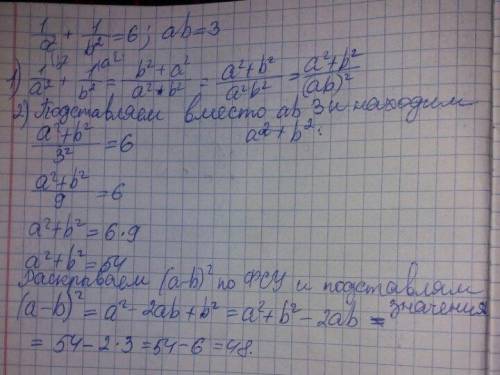 1/a² + 1/b² = 6; ab = 3
1) 1/a² + 1/b² = b² + a² / a² · b² = a² + b² / a²b² = a² + b² / (ab)²
2) Подставляем вместо ab 3 и находим
a² + b² / 3² = 6 a² + b²:
a² + b² / 9 = 6
a² + b² = 6 · 9
a² + b² = 54
Раскрываем (a-b)² по ФСУ и подставляем
значения
(a-b)² = a² - 2ab + b² = a² + b² - 2ab =
= 54 - 2 · 3 = 54 - 6 = 48.